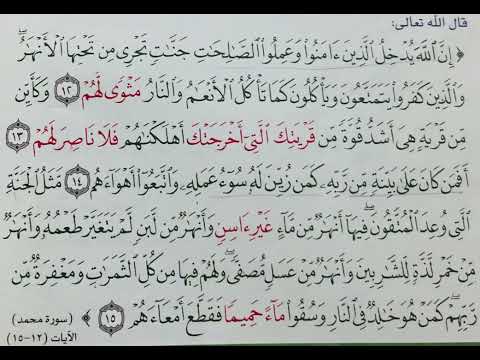 قال الله تعالى:
﴿ إِنَّ ٱللَّهَ يُدۡخِلُ ٱلَّذِينَ ءَامَنُواْ وَعَمِلُواْ ٱلصَّٰلِحَٰتِ جَنَّٰتٖ تَجۡرِي مِن تَحۡتِهَا ٱلۡأَنۡهَٰرُۖ
وَٱلَّذِينَ كَفَرُواْ يَتَمَتَّعُونَ وَيَأۡكُلُونَ كَمَا تَأۡكُلُ ٱلۡأَنۡعَٰمُ وَٱلنَّارُ مَثۡوٗى لَّهُمۡ ١٢ وَكَأَيِّن
مِّن قَرۡيَةٍ هِيَ أَشَدُّ قُوَّةٗ مِّن قَرۡيَتِكَ ٱلَّتِيٓ أَخۡرَجَتۡكَ أَهۡلَكۡنَٰهُمۡ فَلَا نَاصِرَ لَهُمۡ ١٣
أَفَمَن كَانَ عَلَىٰ بَيِّنَةٖ مِّن رَّبِّهِۦ كَمَن زُيِّنَ لَهُۥ سُوٓءُ عَمَلِهِۦ وَٱتَّبَعُوٓاْ أَهۡوَآءَهُم ١٤ مَّثَلُ ٱلۡجَنَّةِ
ٱلَّتِي وُعِدَ ٱلۡمُتَّقُونَۖ فِيهَآ أَنۡهَٰرٞ مِّن مَّآءٍ غَيۡرِ ءَاسِنٖ وَأَنۡهَٰرٞ مِّن لَّبَنٖ لَّمۡ يَتَغَيَّرۡ طَعۡمُهُۥ وَأَنۡهَٰرٞ
مِّنۡ خَمۡرٖ لَّذَّةٖ لِّلشَّٰرِبِينَ وَأَنۡهَٰرٞ مِّنۡ عَسَلٖ مُّصَفّٗىۖ وَلَهُمۡ فِيهَا مِن كُلِّ ٱلثَّمَرَٰتِ وَمَغۡفِرَةٞ مِّن
رَّبِّهِمۡۖ كَمَنۡ هُوَ خَٰلِدٞ فِي ٱلنَّارِ وَسُقُواْ مَآءً حَمِيمٗا فَقَطَّعَ أَمۡعَآءَهُمۡ ١٥ ﴾ (سورة محمد)
الآيات (١٢-١٥)